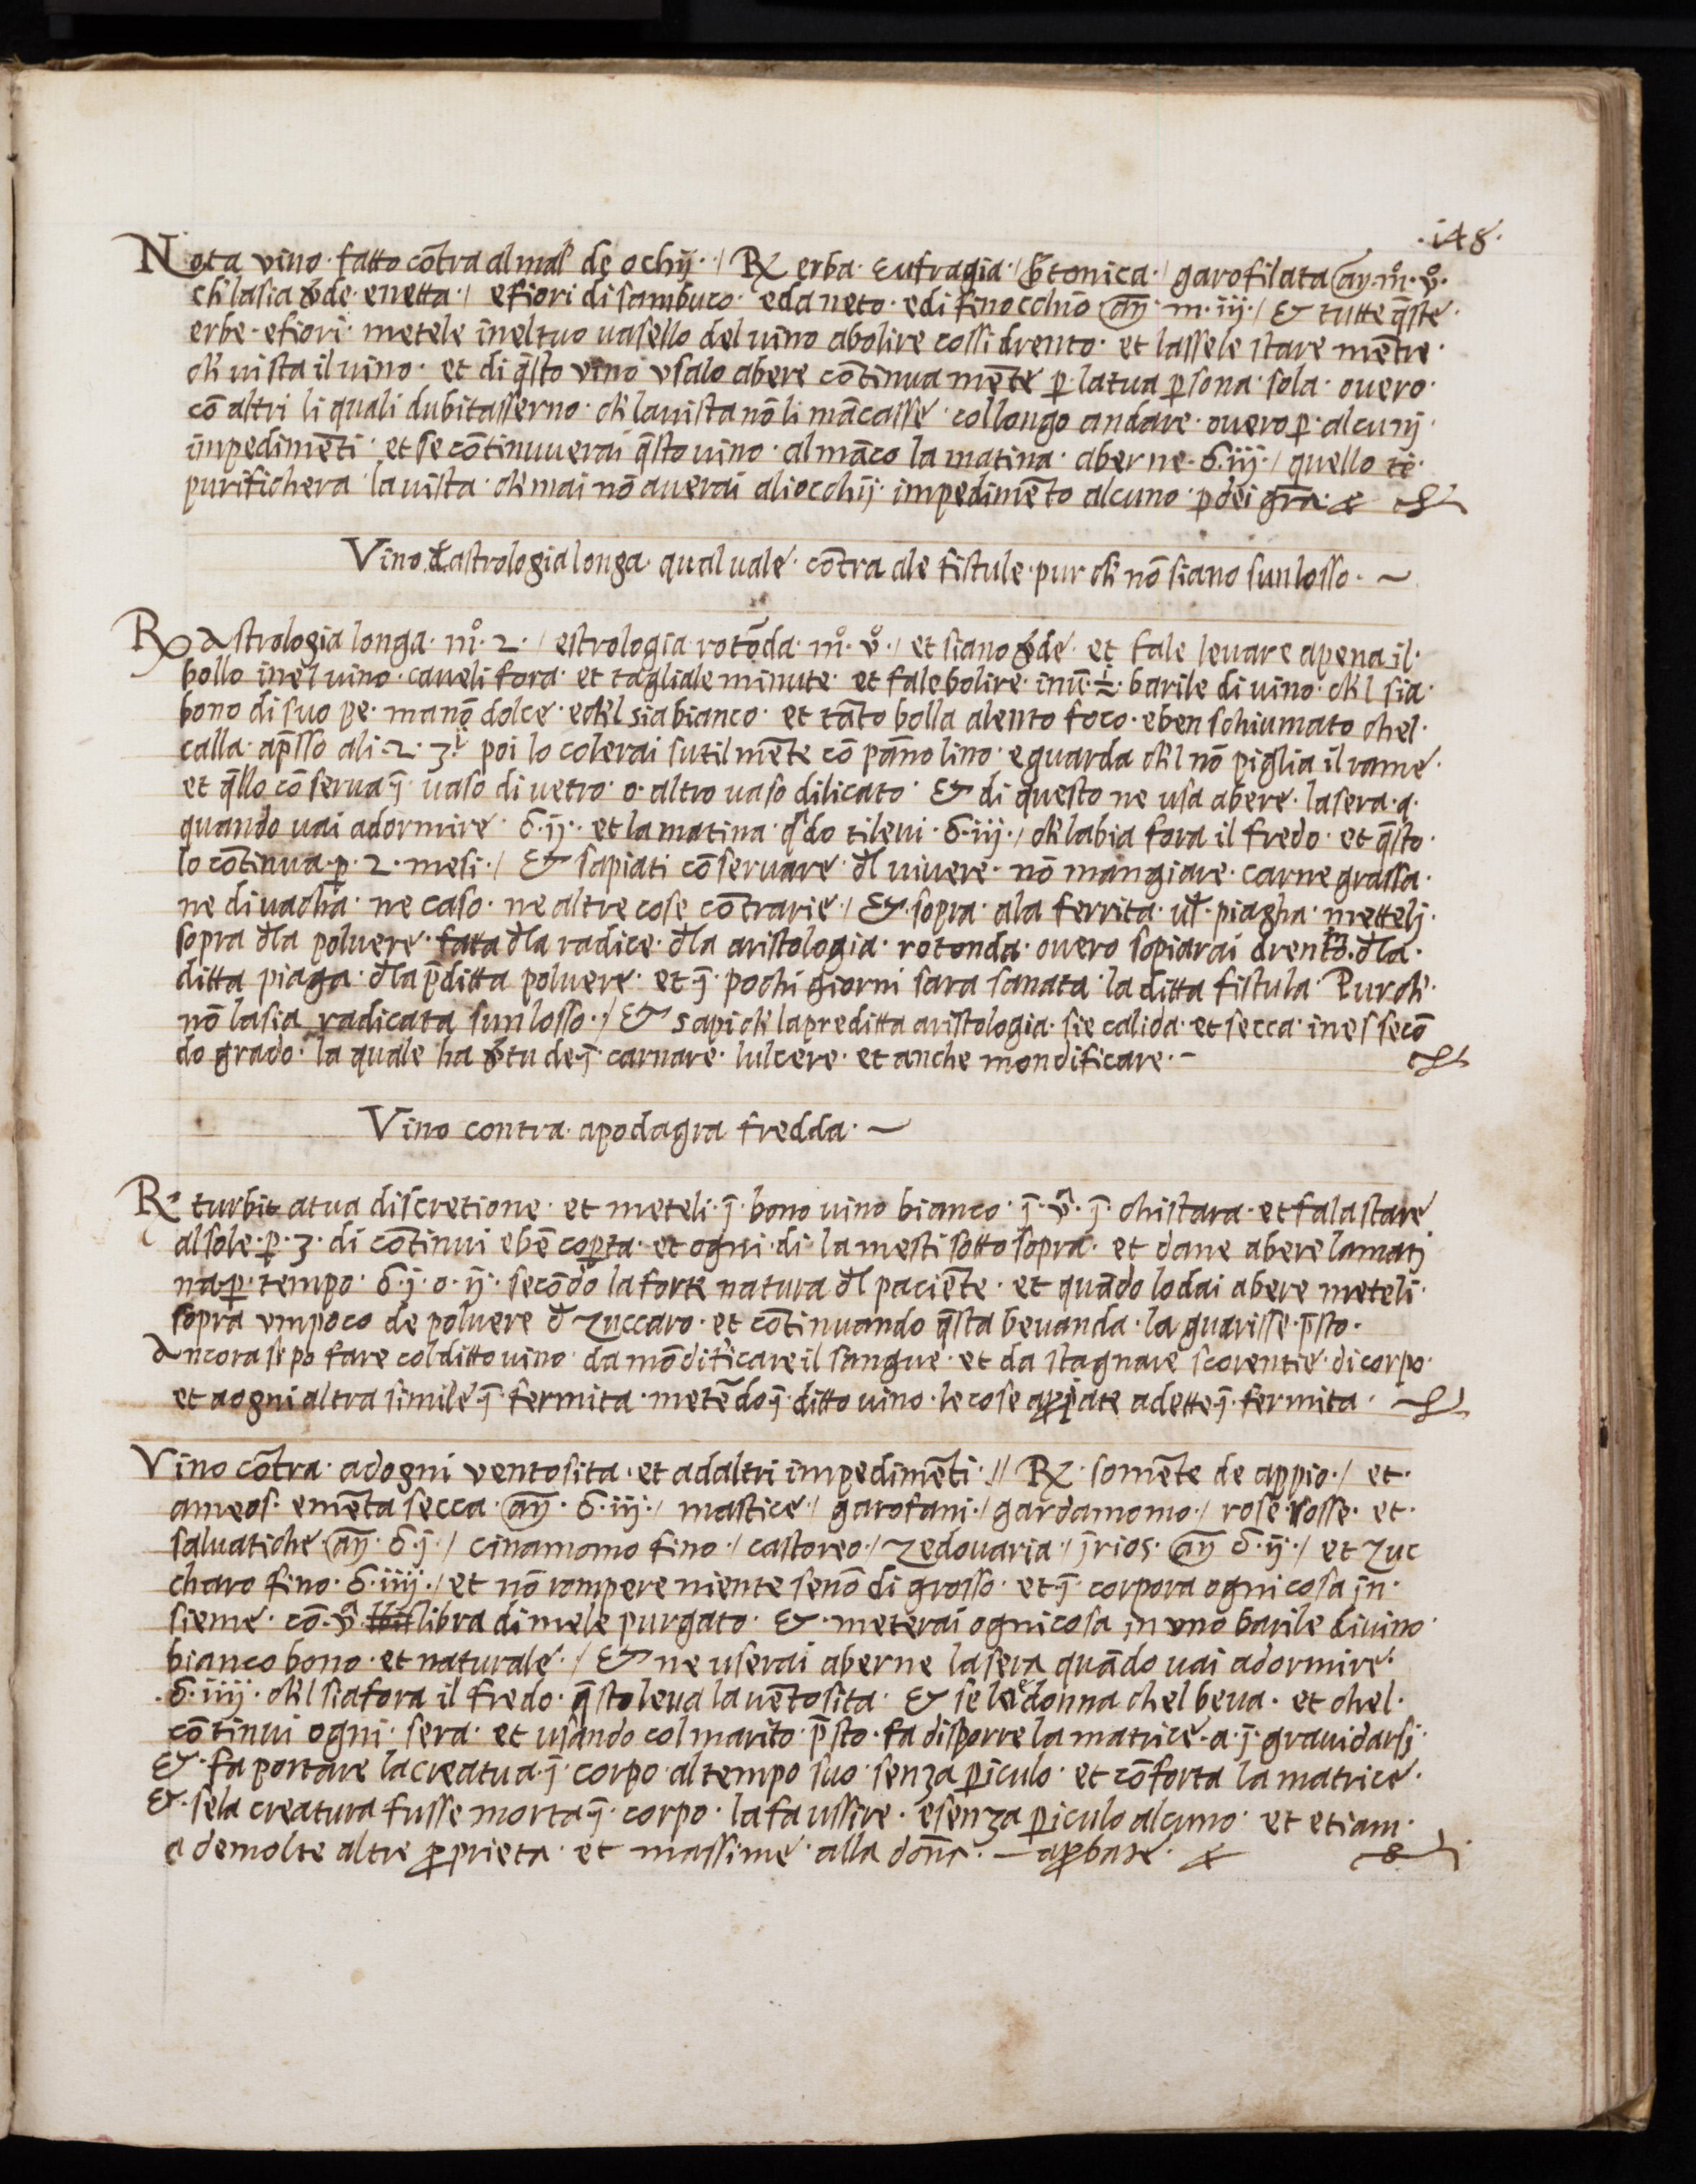 ·148·
Nota vino· fatto cõtra al mal' de ochij·/ ℞ erba· eufragia·/ betonica·/ garofilata añ· m̊· v̊·
ch' la sia v̄de· e netta·/ e fiori di sambuco· e da neto· e di finocchio añ m· iij·/ & tutte q̄ste·
erbe· e fiori· metele inel tuo vasello del vino a bolire cossi drento· et lassele stare mẽtre·
ch' vi sta il vino· et di q̄sto vino vsalo a bere cõtinua mẽte p̱ la tua p̱sona· sola· overo·
cõ altri li quali dubitasserno· ch' la vista nõ li mãcasse· col longo andare· overo p̱· alcunj·
impedimẽti· et se cõtinuverai q̄sto vino· al mãco la matina· a berne· ϭ· iij·/ quello te·
purifichera· la vista· ch' mai nõ averai ali occhij· impedimẽto alcuno· p̱ dei gr̃a·
Vino· đ astrologia longa· qual vale· cõtra ale fistule· pur ch' nõ siano sun losso· ~
℞ Astrologia longa· m̊· 2·/ estrologia rotõda· m̊· v̊·/ et siano v̄de· et fale levare apena il·
bollo inel vino· caveli fora· et tagliale minute· et fale bolire· inũ· ½· barile di vino· ch'l sia·
bono di suo pe· ma nõ dolce· e ch'l sia bianco· et tãto bolla a lento foco· e ben schiumato chel·
calla· ap̃sso ali· 2· 3ⁱ· poi lo colerai sutilmẽte cõ pãno lino· e guarda ch'l nõ piglia il rame·
et q̄llo cõserva j̄· vaso di vetro· o· altro vaso dilicato· & di questo ne usa a bere· la sera· q·
quando vai a dormire· ϭ· ij·· et la matina· q̄do ti levi· ϭ· iij·/ ch' labia fora il fredo· et q̄sto·
lo cõtinua· p̱· 2· mesi·/ & sapiati cõservare· đl vivere· nõ mangiare· carne grassa·
ne di vacha· ne caso· ne altre cose cõtrarie·/ &· sopra· ala ferrita· vł· piagha· mettelj·
sopra đla polvere· fatta đla radice· đla aristologia· rotonda· overo sopiarai drento· đla·
ditta piaga· đla p̃ditta polvere· et j̄· pochi giorni sara sanata· la ditta fistula· Pur ch'·
nõ la sia radicata sun losso·/ & sapi ch' la preditta aristologia· sie calida· et secca· ines secõ
do grado· la quale ha v̄tu de j̄· carnare· lulcere· et anche mondificare· -
Vino contra· apodagra fredda· ~
℞ turbit a tua discretione· et meteli· j̄· bono vino bianco· j̄· v̊· j̄· chistara· et fala stare
al sole· p̱· 3· di cõtinui e bẽ cop̱ta· et ogni· di· la mesti sotto sopra· et dane a bere la matj
na p̱· tempo· ϭ· j· o· ij· secõdo la forte natura đl paciẽte· et quãdo lo dai a bere meteli·
sopra vmpoco de polvere đ zuccaro· et cõtinuando q̄sta bevanda· la guarisse· p̃sto·
Ancora si po fare col ditto vino· da mõdificare il sangue· et da stagnare scorentie· di corpo·
et a ogni altra simile j̄· fermita· metẽdo j̄· ditto vino· le cose app̱iate a dette j̄· fermita·
Vino cõtra· ad ogni ventosita· et ad altri impedimẽti·// ℞· somẽte de appio·/ et·
ameos· e mẽta secca· añ· ϭ· iij·/ mastice·/ garofani·/ gardamomo·/ rose· rosse· et·
salvatiche· añ· ϭ· j·/ cinamomo fino·/ castoreo·/ zedovaria·/ jrios· añ ϭ· ij·/ et zuc
charo fino· ϭ· iiij·/ et nõ rompere niente senõ di grosso· et j̄· corpora ogni cosa jn·
sieme· cõ· v̊· libra di mele purgato· &· meterai ogni cosa in vno barile di vino·
bianco bono· et naturale·/ & ne userai a berne la sera quãdo vai a dormire·
· ϭ· iiij· ch'l sia fora il fredo· q̄sto leva la vẽtosita· & se le donna chel beva· et chel·
cõtinui ogni· sera· et usando col marito· p̃sto· fa disporre la matrice· a· j̄· gravidarsj·
&· fa portare la creatua· j̄· corpo· al tempo suo· senza p̱iculo· et cõforta la matrice·
&· se la creatura fusse morta j̄· corpo· la fa ussire· e senza p̱iculo alcuno· et etiam·
a de molte altre p̱prieta· et massime· alla dõna· — ap̱bate·